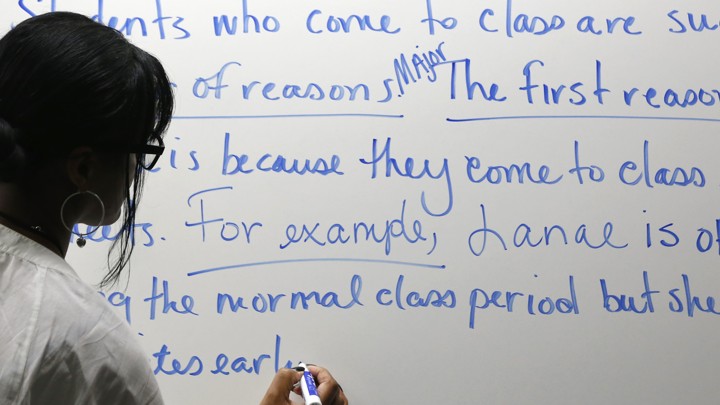 Students who come to class are su
of reasons. Major The first reason
is because they come to class
For example, Lanae is of
the normal class period but she
tes early